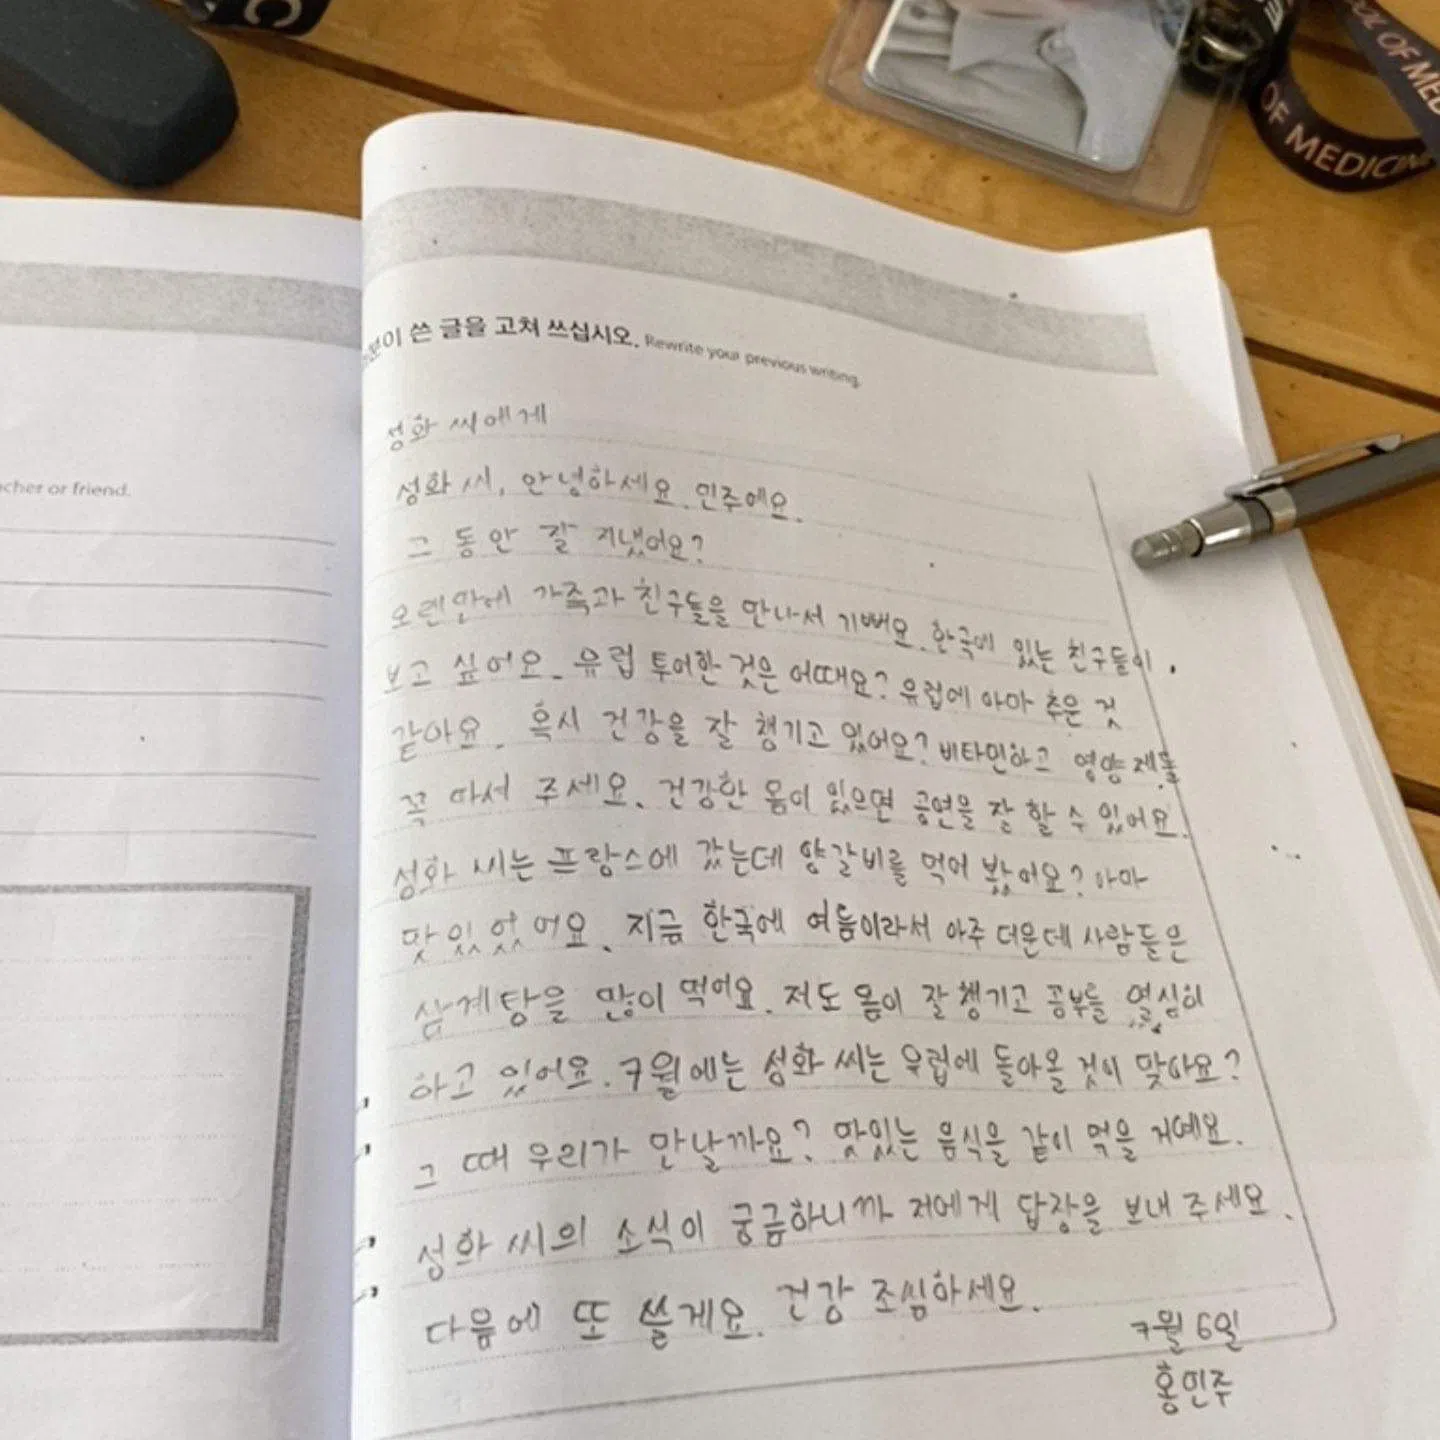 C
OL OF MED
OF MEDICIN
분이 쓴 글을 고쳐 쓰십시오. Rewrite your previous writing.
cher or friend.
성화 씨에게
성화 씨, 안녕하세요. 민주예요.
그 동안 잘 지냈어요?
오랜만에 가족과 친구들을 만나서 기뻐요. 한국에 있는 친구들이
보고 싶어요. 유럽 투어한 것은 어때요? 유럽에 아마 추운 것
같아요. 혹시 건강을 잘 챙기고 있어요? 비타민하고 영양제를
꼭 마셔 주세요. 건강한 몸이 있으면 공연을 잘 할 수 있어요.
성화 씨는 프랑스에 갔는데 양갈비를 먹어 봤어요? 아마
맛있었어요. 지금 한국에 여름이라서 아주 더운데 사람들은
삼계탕을 많이 먹어요. 저도 몸이 잘 챙기고 공부를 열심히
하고 있어요. 7월에는 성화 씨는 유럽에 돌아올 것이 맞아요?
그 때 우리가 만날까요? 맛있는 음식을 같이 먹을 거예요.
성화 씨의 소식이 궁금하니까 저에게 답장을 보내 주세요.
다음에 또 쓸게요. 건강 조심하세요.
7월 6일
홍민주